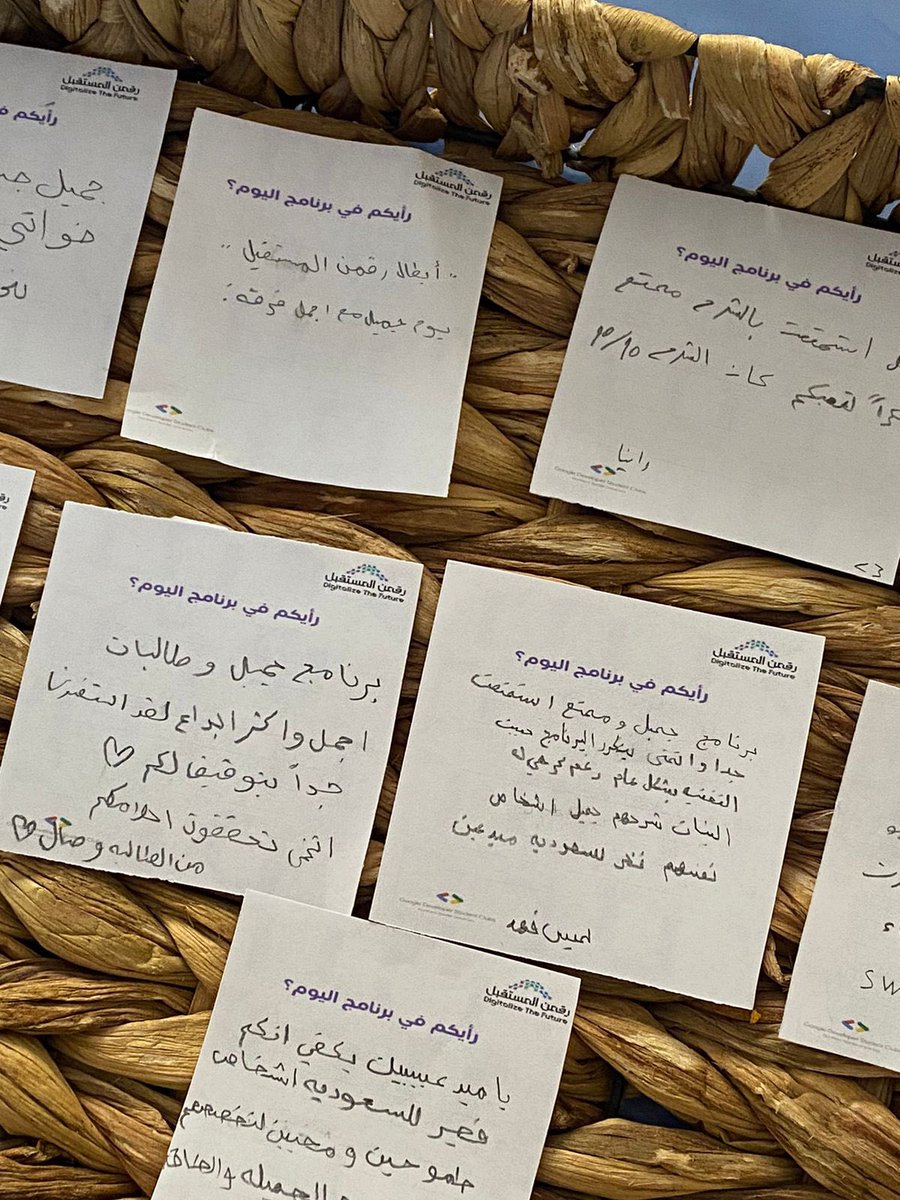 رقمن المستقبل
Digitalize The Future
رأيكم في
جميل
رقمن المستقبل
Digitalize The Future
رأيكم في برنامج اليوم؟
.. أبطال رقمن المستقبل ..
يوم جميل مع اجمل فرقة
Google Developer Student Clubs
رأيكم في برنامج اليوم؟
استمتعت بالشرح ممتع
لتعبكم كان الشرح
رانيا
Google Developer Student Clubs
<3
رقمن المستقبل
Digitalize The Future
رأيكم في برنامج اليوم؟
برنامج جميل و طالبات
اجمل واكثر ابداع لقد استفدنا
جداً بتوفيق لكم ♡
اتمنى تحققون احلامكم
من الطالبه وصال ♡
رقمن المستقبل
Digitalize The Future
رأيكم في برنامج اليوم؟
برنامج جميل و ممتع استمتعت
جدا واتمنى يتطور البرنامج حبيت
التقنيه بشكل عام رغم كرهي له
البنات شرحهم جميل اشخاص
نفسهم فخر للسعوديه مبدعين
لميس فهد
Google Developer Student Clubs
SW
رقمن المستقبل
Digitalize The Future
رأيكم في برنامج اليوم؟
يا مبدعيييين يكفي انكم
فخر للسعوديه اشخاص
طموحين و محبين لتخصصهم
الجميله